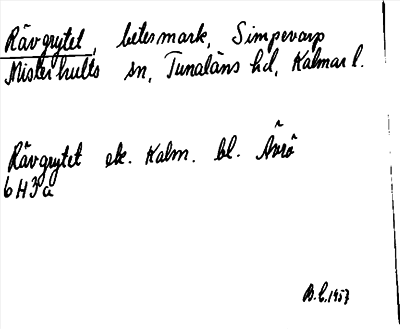 Rävgrytet, betesmark, Simpevarp
Misterhults sn, Tunaläns hd, Kalmar l.
Rävgrytet ek. Kalm. bl. Ävrö
6 H 3 a
B.E. 1957